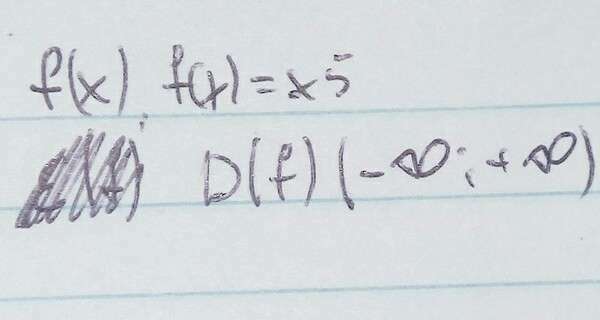 f(x), f(x)=x5
D(f) (-∞; +∞)